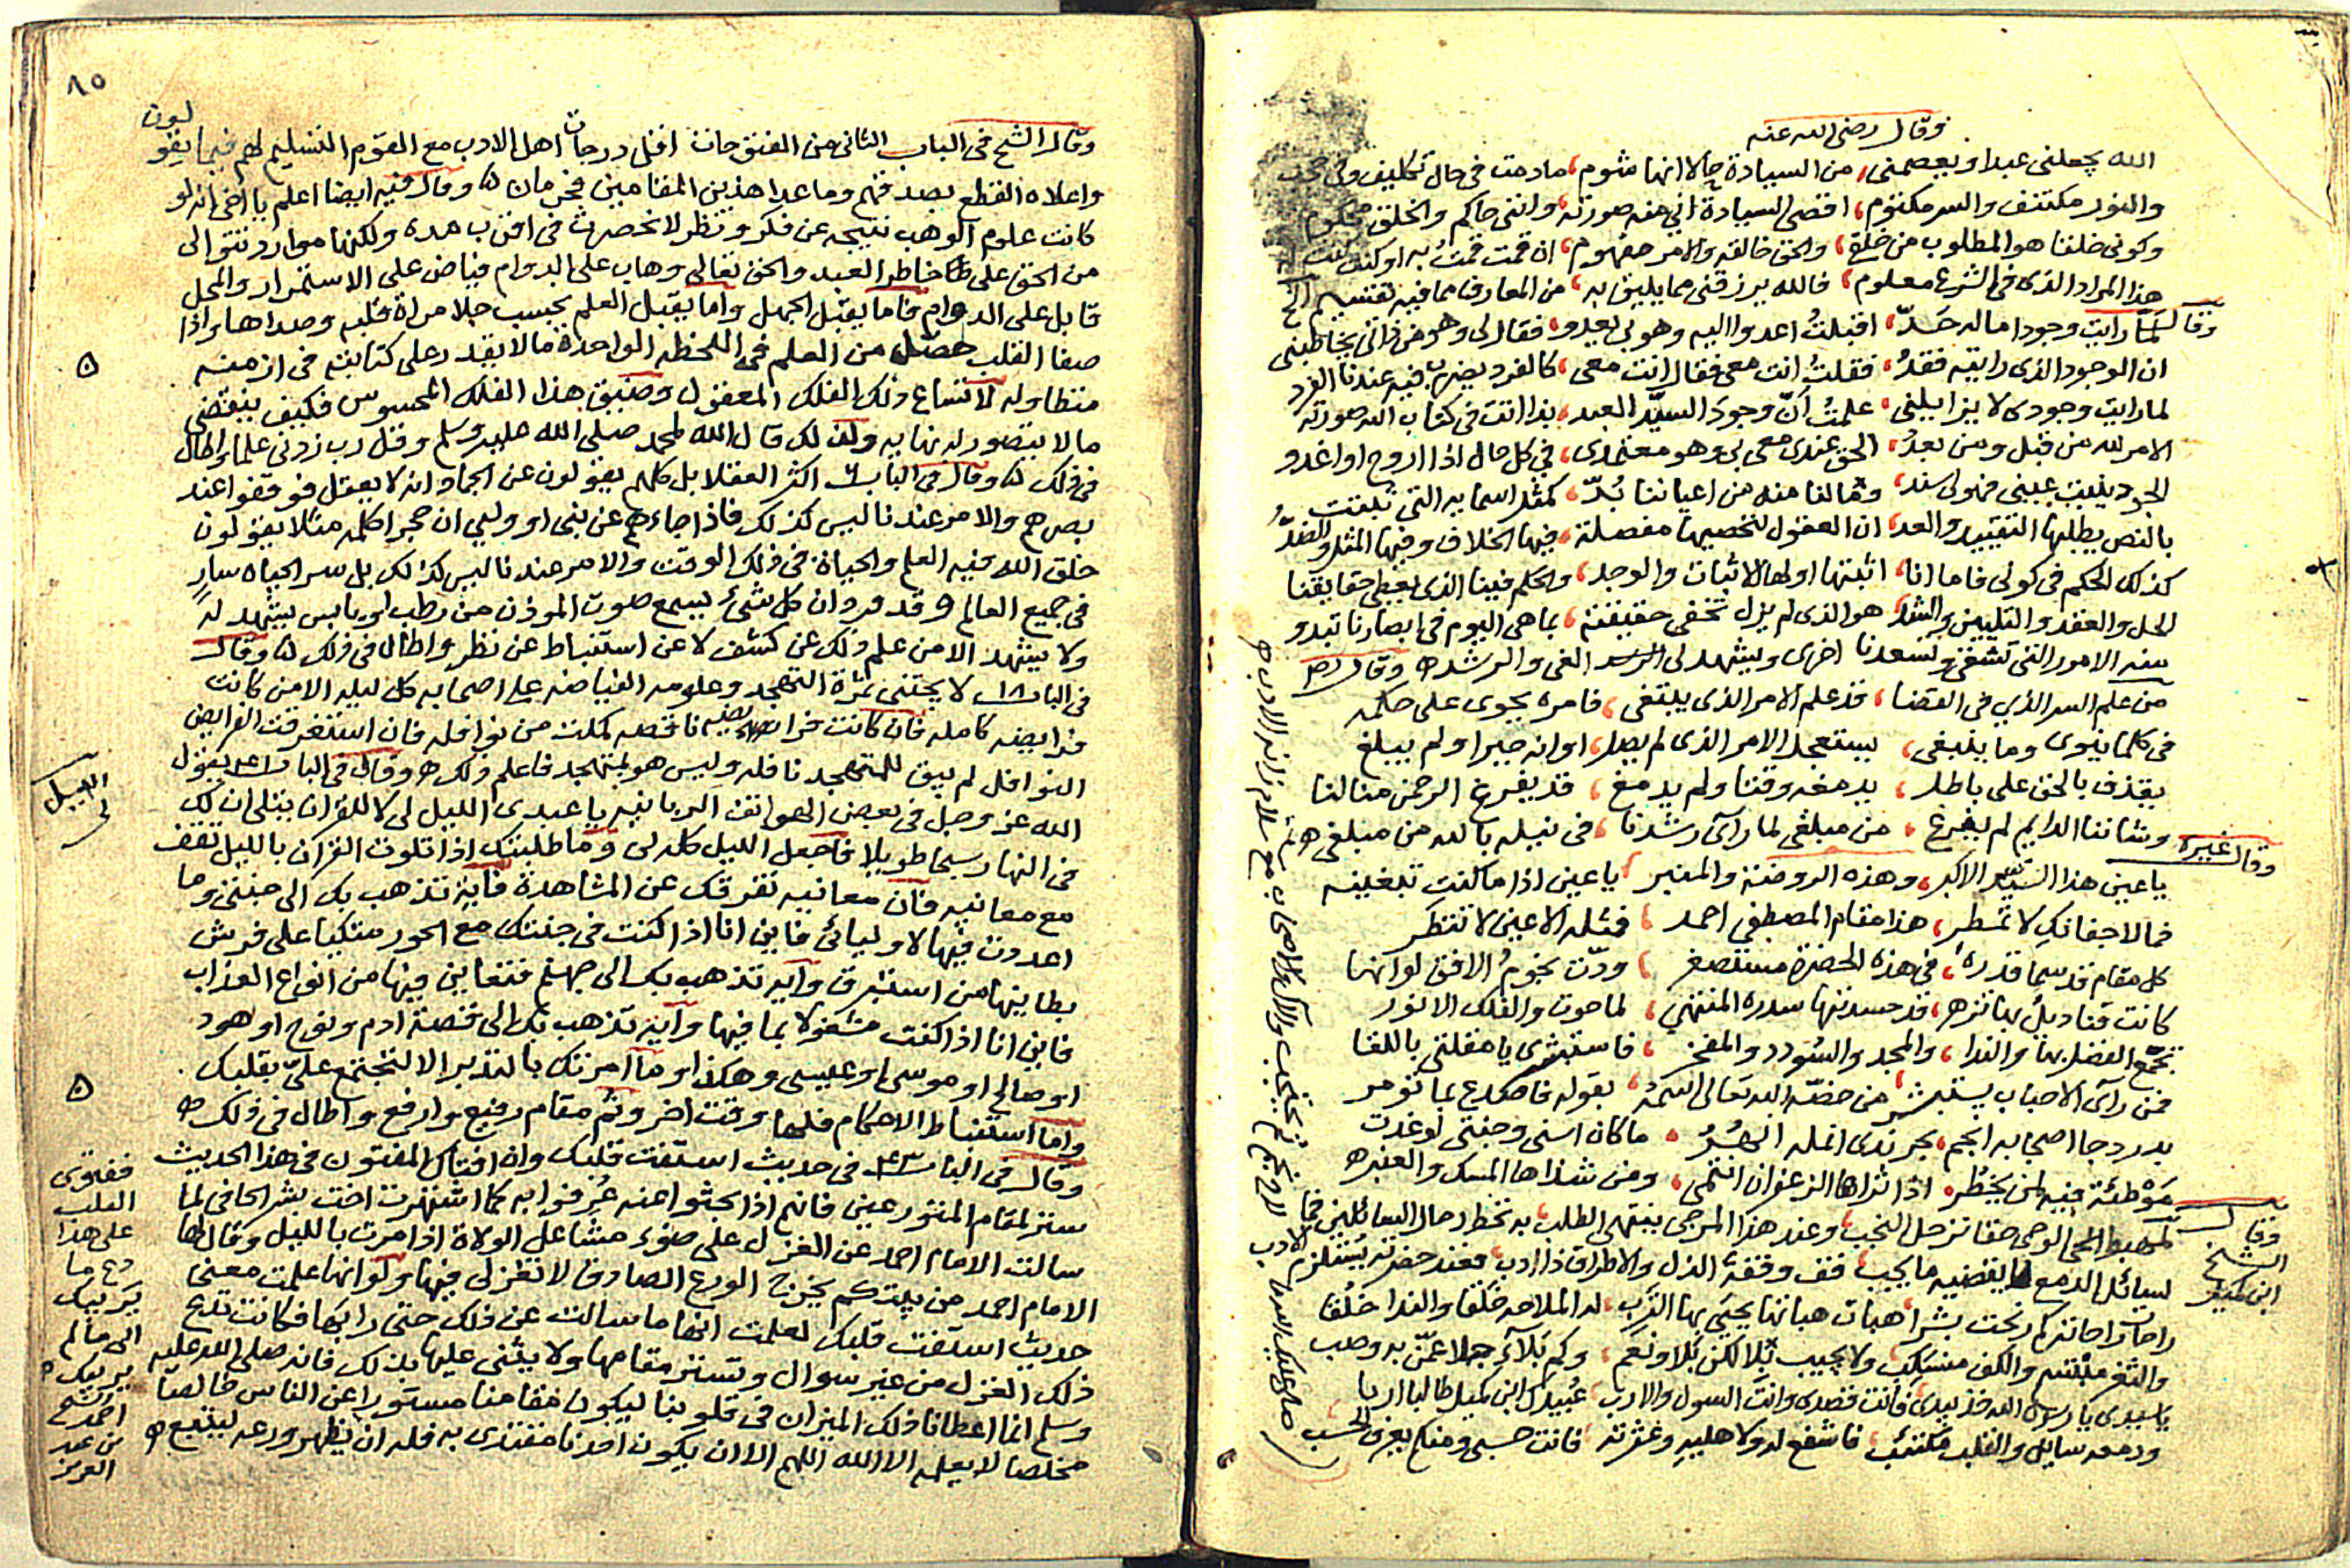 وقال رضى الله عنه
الله يجعلنى عبدا ويعصمنى من السيادة حالا انها شوم مادمت فى حال تكليف وفى
والنور مكتنف والسر مكتوم اقتضى السيادة انى منه صورته وانتى حاكم والخلق محكوم
وكونى خلفنا هو المطلوب من خلق والحق خالقه والامر مفهوم ان قمت قمت به او كنت كنت له
هذا المراد الذى فى الشرع معلوم فالله يرزقنى مما يليق به من المعارف مما فيه تقسيم
وقال
لما رايت وجودا ماله حد اقبلت اعدو اليه وهو لى يعدو فقال لى وهو من ذاتى يخاطبنى
ان الوجود الذى رايته فقد فقلت انت معى فقال انت معى كالفرد يضرب فيه عندنا الفرد
لما رايت وجودى لا يزايلنى علمت أن وجود السيد العبد بذا اتت فى كتاب الله صورته
الامر لله من قبل ومن بعد الحق عندى معى بى وهو معتمدى فى كل حال اذا اروح او اغدو
الجود يثبت عينى فهو لى سند ومالنا منه من اعياننا بد كمثل اسمايه التى ثبتت
بالنص يطلبها التقييد والعد ان العقول لتحصيها مفصلة فيها الخلاف وفيها المثل والضد
كذلك الحكم فى كونى فاما انا اثبتها او لها الاثبات والوجد والحكم فينا الذى يعطى حقايقنا
الحل والعقد والتليين والشد هو الذى لم يزل تخفى حقيقته بما هى اليوم فى ابصارنا تبدو
منه الامور التى تشقى وتسعدنا اخرى ويشهد لى الغى والرشد وقال
من علم السر الذى فى القضا قد علم الامر الذى يبتغى فامره يجرى على حكمه
فى كلما ينوى وما ينبغى يستعجل الامر الذى لم يصل اوانه جبرا ولم يبلغ
يقذف بالحق على باطل يدمغه وقتا ولم يدمغ قد يفرغ الرحمن منا لنا
وشاننا الدايم لم يفرغ من مبلغى لما رأى رشدنا فى نيله بالله من مبلغى
وقال غيره
يا عين هذا السيد الاكبر وهذه الروضة والمنبر يا عين اذا ما كنت تبغينه
فما لاجفانك لا تمطر هذا مقام المصطفى احمد فمثله الاعين لا تنظر
كل مقام قد سما قدره فى هذه الحضرة مستصغر ودت نجوم الافق لو انها
كانت قناديل بها تزهر قد حسدتها سدرة المنتهى لما حوت والفلك الانور
تجمع الفضل بها والندا والمجد والسودد والمفخر فاستبشرى يا مقلتى باللقا
فمن رآى الاحباب يستبشر من خصه الله تعالى اسمه بقوله فاصدع بما تومر
بدر دجا اصحابه انجم بحر ندى انمله انهر ما كان اسنى وجنتى لو غدت
موطئة فيه لمن يخطر اذا ثراها الزعفران انتمى ومن شذاها المسك والعنبر
وقال الشيخ ابن كميل
لمهبط الوحى حقا ترحل النجب وعند هذا المرجى ينتهى الطلب به تحط رحال السائلين فما
لسائل الدمع ما يقضيه ما يجب فقف وقفة الذل والاطراق ذا ادب فعند حضرته يستلزم الادب
راحات راحاتكم نحت بشرا هبات هباتها يحيى بها الترب له الملاحه خلقا والندا خلقا
والثغر مبتسم والكف منسكب ولا يجيب بلا لكن بلا ونعم وكم بلاء جلا عمن به وصب
يا سيدى يا رسول الله خذ بيدى فانت قصدى وانت السول والارب عبيدك ابن كميل طالبا اربا
ودمعه سايل والقلب مكتئب فاشفع له ولا هليه وعثرته فانت حسبى ومنكم يعرف الحسب
٨٥
وقال الشيخ فى الباب الثانى من الفتوحات اقل درجات اهل الادب مع القوم التسليم لهم فيما يقولون
واعلاه القطع بصدقهم وما عدا هذين المقامين فحرمان وقال فيه ايضا اعلم يا اخى انه لو
كانت علوم الوهب نتيجه عن فكر ونظر لانحصرت فى اقرب مده ولكنها موارد تتوالى
من الحق على خاطر العبد والحق تعالى وهاب على الدوام فياض على الاستمرار والمحل
قابل على الدوام فاما يقبل الجهل واما يقبل العلم بحسب جلا مرآة قلبه وصداها واذا
صفا القلب حصل من العلم فى اللحظه الواحدة مالا يقدر على كتابته فى ازمنه
متطاوله لاتساع ذلك الفلك المعقول وضيق هذا الفلك المحسوس فكيف ينقضى
مالا يتصور له نهايه ولذلك قال الله لمحمد صلى الله عليه وسلم وقل رب زدنى علما واطال
فى ذلك وقال فى الباب اكثر العقلا بل كلهم يقولون عن الجماد انه لا يعقل فوقفوا عند
بصرهم والامر عندنا ليس كذلك فاذا جاءهم عن نبى او ولى ان حجرا كلمه مثلا يقولون
خلق الله فيه العلم والحياة فى ذلك الوقت والامر عندنا ليس كذلك بل سر الحياه سار
فى جميع العالم وقد ورد ان كل شىء يسمع صوت الموذن من رطب او يابس يشهد له
ولا يشهد الا من علم ذلك عن كشف لا عن استنباط عن نظر واطال فى ذلك وقال
فى الباب ١٨ لا يجتنى ثمرة التهجد وعلومه الفياضه على اصحابه كل ليله الا من كانت
فرايضه كامله فان كانت فرايضه ناقصه كملت من نوافله فان استغرقت الفرايض
النوافل لم يبق للمتهجد نافله وليس هو بمتهجد فاعلم ذلك وقال فى الباب يقول
الله عز وجل فى بعض الهواتف الربانيه يا عبدى الليل لى لا للقران يتلى ان لك
الليل لى
فى النهار سبحا طويلا فاجعل الليل كله لى وما طلبتك اذا تلوت القرآن بالليل لتقف
مع معانيه فان معانيه تفرقك عن المشاهدة فآية تذهب بك الى جنتى وما
اعددت فيها لاوليائى فاين انا اذا كنت فى جنتك مع الحور متكيا على فرش
بطاينها من استبرق وآيه تذهب بك الى جهنم فتعاين فيها من انواع العذاب
فاين انا اذا كنت مشغولا بما فيها وآية تذهب بك الى قصة ادم ونوح او هود
او صالح او موسى او عيسى وهكذا وما امرتك بالتدبر الا لتجتمع على بقلبك
واما استنباط الاحكام فلها وقت اخر وثم مقام رفيع وارفع واطال فى ذلك
وقال فى الباب فى حديث استفت قلبك وان افتاك المفتون فى هذا الحديث
ستر لمقام المتورعين فانهم اذا بحثوا عنه عرفوا به كما اشتهرت اخت بشر الحافى لما
سالت الامام احمد عن الغزل على ضوء مشاعل الولاة اذا مرت بالليل وقال لها
الامام احمد من بيتكم يخرج الورع الصادق لا تغزلى فيها ولو انها علمت معنى
حديث استفت قلبك لعلمت انها ما سالت عن ذلك حتى رابها فكانت تدع
ذلك الغزل من غير سوال وتستر مقامها ولا يثنى عليها بذلك فانه صلى الله عليه
وسلم انما اعطانا ذلك الميزان فى قلوبنا ليكون مقامنا مستورا عن الناس خالصا
مخلصا لا يعلمه الا الله اللهم الا ان يكون احدنا مقتدى به فله ان يظهر ورعه ليتبع
ففتوى
القلب
على هذا
دع ما
يريبك
الى ما لم
يريبك
الشيخ
احمد
بن عبد
العزيز